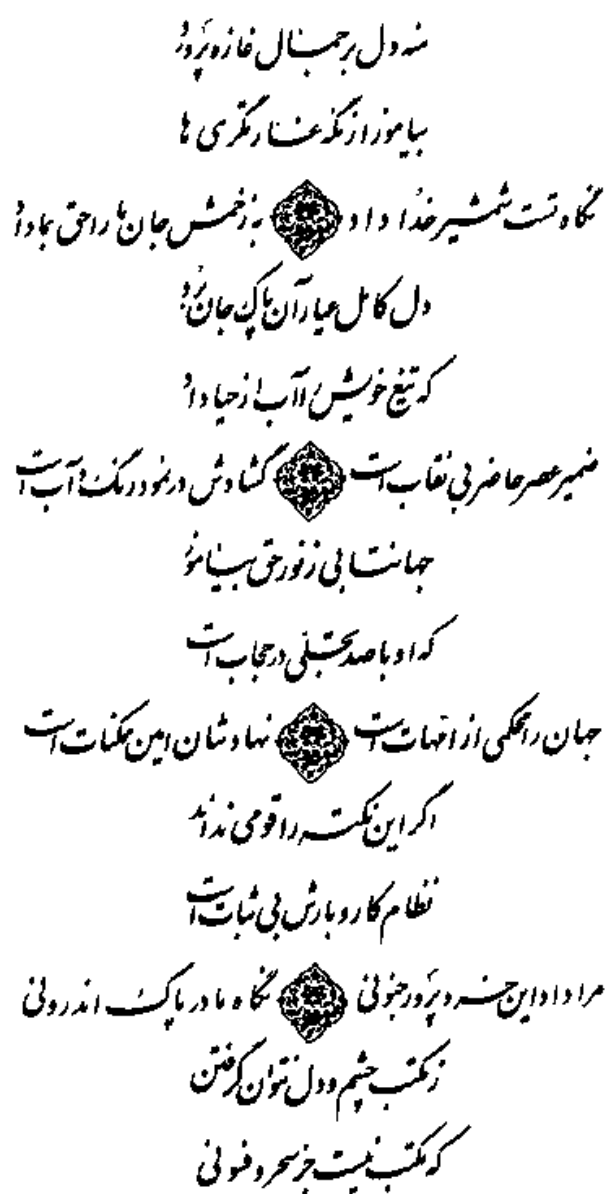 منه دل بر جمال غازه پرورد
بیاموز از نگه غارتگری ها
نگاه تست شمشیر خدا داد به زخمش جان ما را حق بما داد
دل کامل عیار آن پاک جان برد
که تیغ خویش را آب از حیا داد
ضمیر عصر حاضر بی نقاب است گشادش در نمود رنگ و آب است
جهانتابی ز نور حق بیاموز
که او با صد تجلی در حجاب است
جهان را محکمی از امهات است نهادشان امین ممکنات است
اگر این نکته را قومی نداند
نظام کار و بارش بی ثبات است
مرا داد این خرد پرور جنونی نگاه مادر پاک اندرونی
ز مکتب چشم و دل نتوان گرفتن
که مکتب نیست جز سحر و فسونی